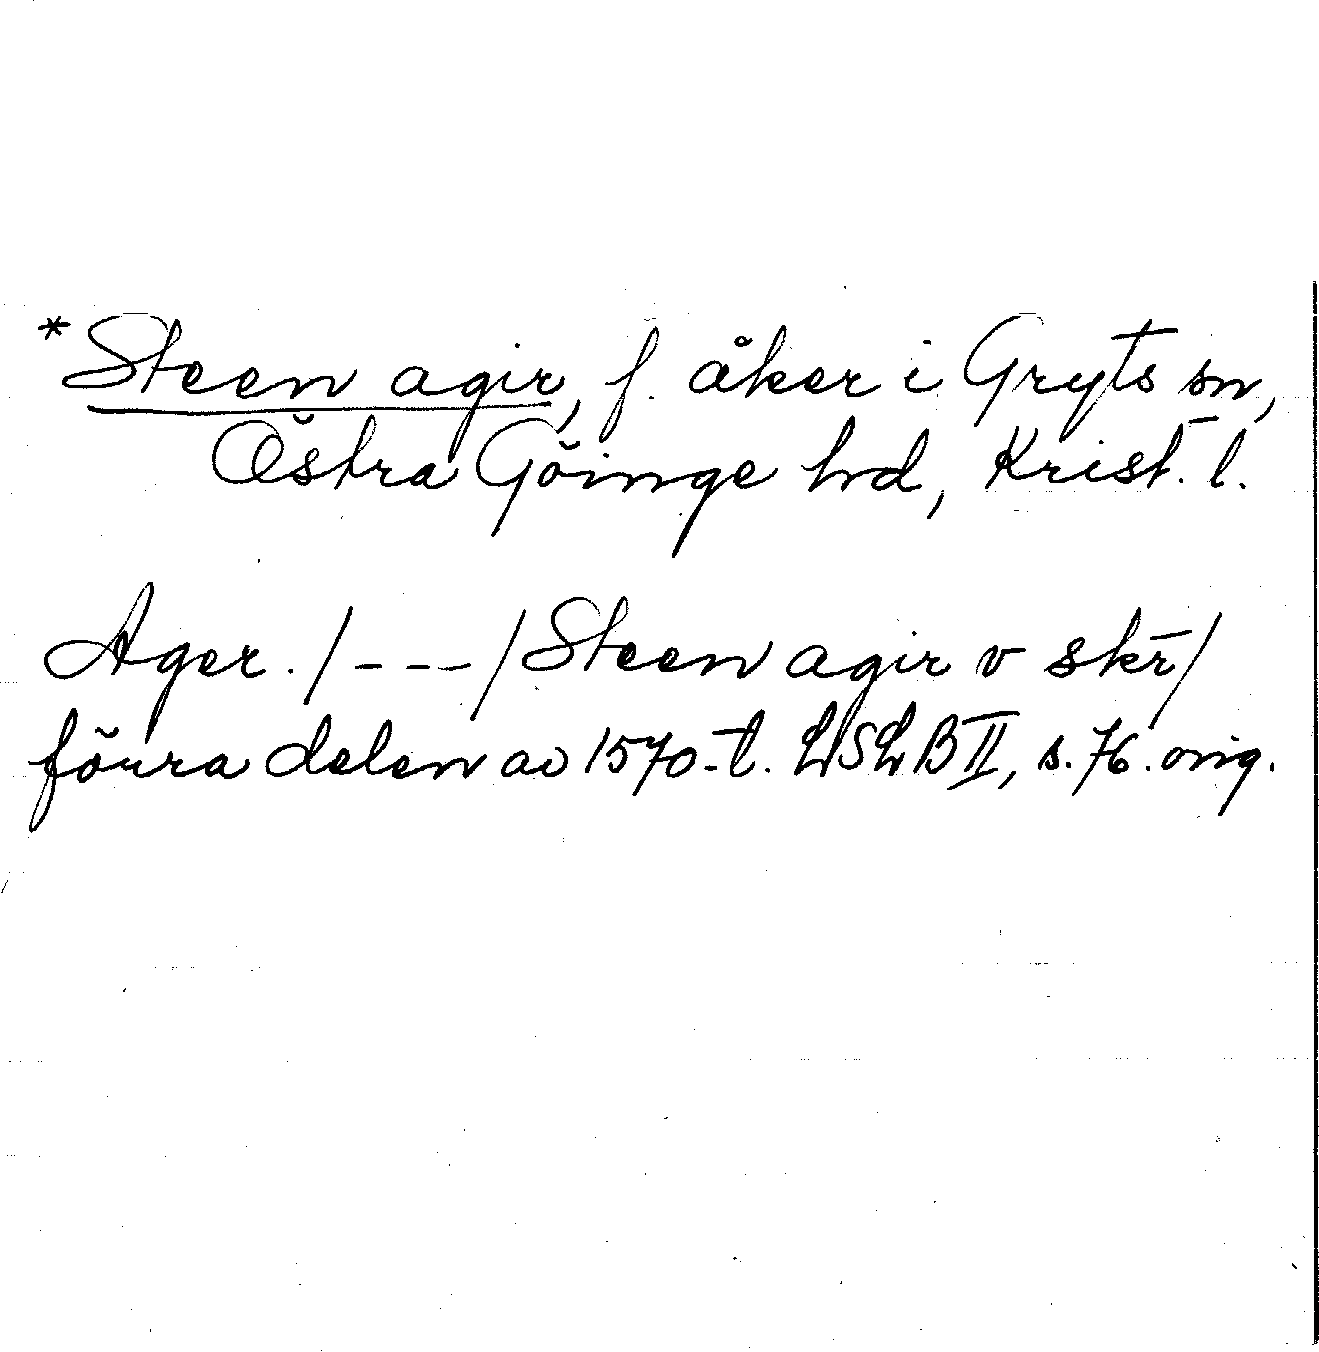 *Steen agir, f. åker i Gryts sn,
Östra Göinge hd, Krist. l.
Ager. /---/ Steen agir v skr̄/
förra delen av 1570-t. LSLB II, s. 76. orig.